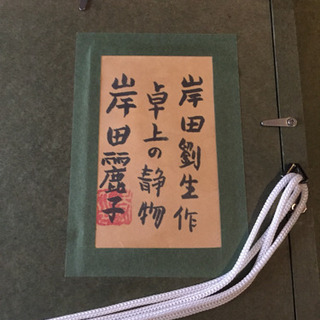 岸田劉生作
卓上の静物
岸田麗子